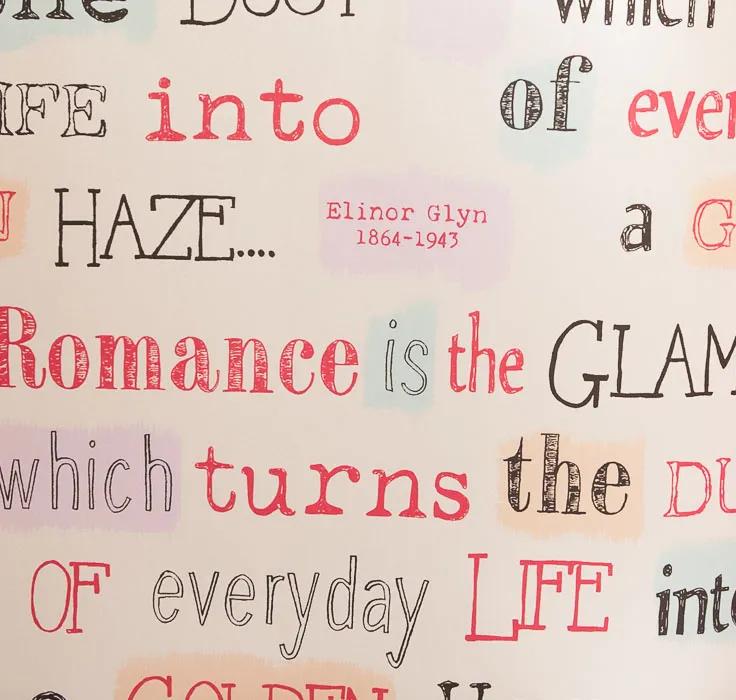 DUST which
IFE into of ever
HAZE.... Elinor Glyn a G
1864-1943
Romance is the GLAM
which turns the DU
OF everyday LIFE into
GOLDEN H